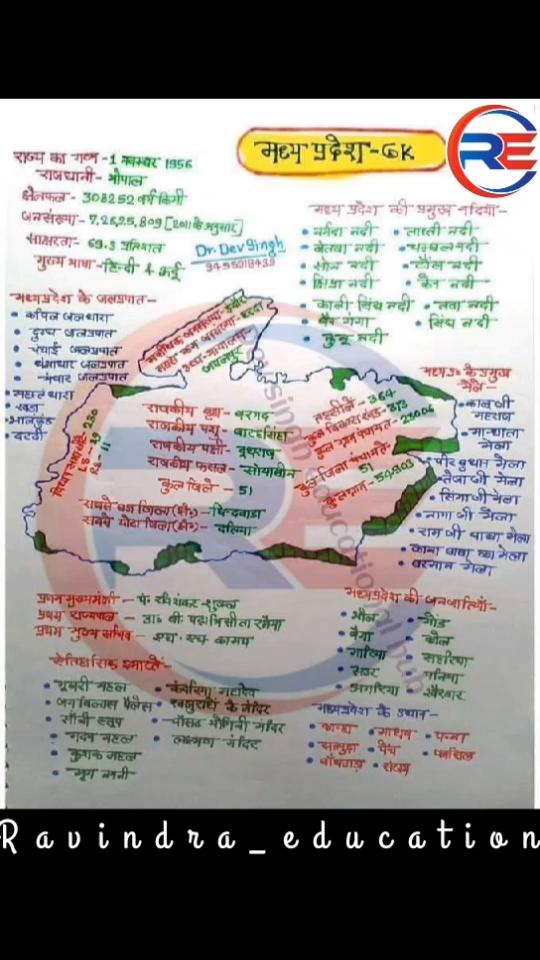 RE
मध्य प्रदेश-GK
राज्य का गठन -1 नवम्बर 1956
राजधानी - भोपाल
क्षेत्रफल - 308252 वर्ग किमी
जनसंख्या - 7,26,25,809 [2011 के अनुसार]
साक्षरता - 69.3 प्रतिशत
मुख्य भाषा - हिन्दी & उर्दू
Dr. Dev Singh
मध्य प्रदेश की प्रमुख नदियां-
• नर्मदा नदी • ताप्ती नदी
• बेतवा नदी • चम्बल नदी
• सोन नदी • टौंस नदी
• क्षिप्रा नदी • केन नदी
• काली सिंध नदी • तवा नदी
• बैन गंगा • सिंध नदी
• कुनू नदी
मध्यप्रदेश के जलप्रपात-
• कपिल जलधारा
• दुग्ध जलप्रपात
• चचाई जलप्रपात
• धुंआधार जलप्रपात
जलप्रपात
• भालकुंड
राजकीय वृक्ष - बरगद
राजकीय पशु - बारहसिंहा
राजकीय पक्षी - दुधराज
राजकीय फसल - सोयाबीन
कुल जिले - 51
सबसे बड़ा जिला (क्षे०) - छिन्दवाड़ा
सबसे छोटा जिला (क्षे०) - दतिया
तहसीले - 364
कुल विकास खंड - 313
कुल ग्राम पंचायत - 23006
कुल जिला पंचायत - 51
मध्यप्र० के प्रमुख
मेले-
• कालू जी महराज
• मान्धाता मेला
• पीर बुधान मेला
• तेजा जी मेला
• सिंगाजी मेला
• नागा जी मेला
• राम जी बाबा मेला
• काना बाबा का मेला
• बरमान मेला
प्रथम मुख्यमंत्री - पं. रविशंकर शुक्ल
प्रथम राज्यपाल - डा० बी. पट्टाभि सीतारमैया
प्रथम मुख्य सचिव - एच. एस. कामथ
ऐतिहासिक इमारतें-
• गूजरी महल • कंदरिया महादेव
• जय विलास पैलेस • खजुराहो के मंदिर
• साँची स्तूप • चौसठ योगिनी मंदिर
महल • लक्ष्मण मंदिर
• कुशक महल
• मृग नयनी
मध्यप्रदेश की जनजातियां-
• भील • गोंड
• बैगा • कोल
• सहरिया
• पनिका
• अगरिया • खैरवार
मध्यप्रदेश के उद्यान-
• कान्हा • माधव • पन्ना
• सतपुड़ा • पेंच • फासिल
• बाँधवगढ़ • संजय
Ravindra_education